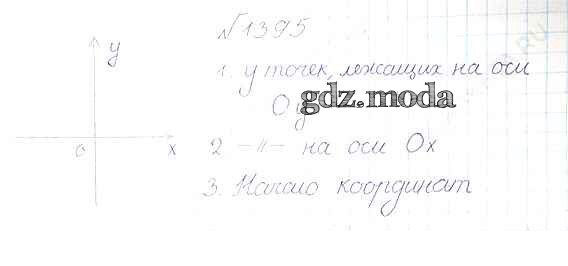 №1395
y
1. у точек, лежащих на оси
Oy
gdz.moda
0
x
2 –//– на оси Ox
3. Начало координат